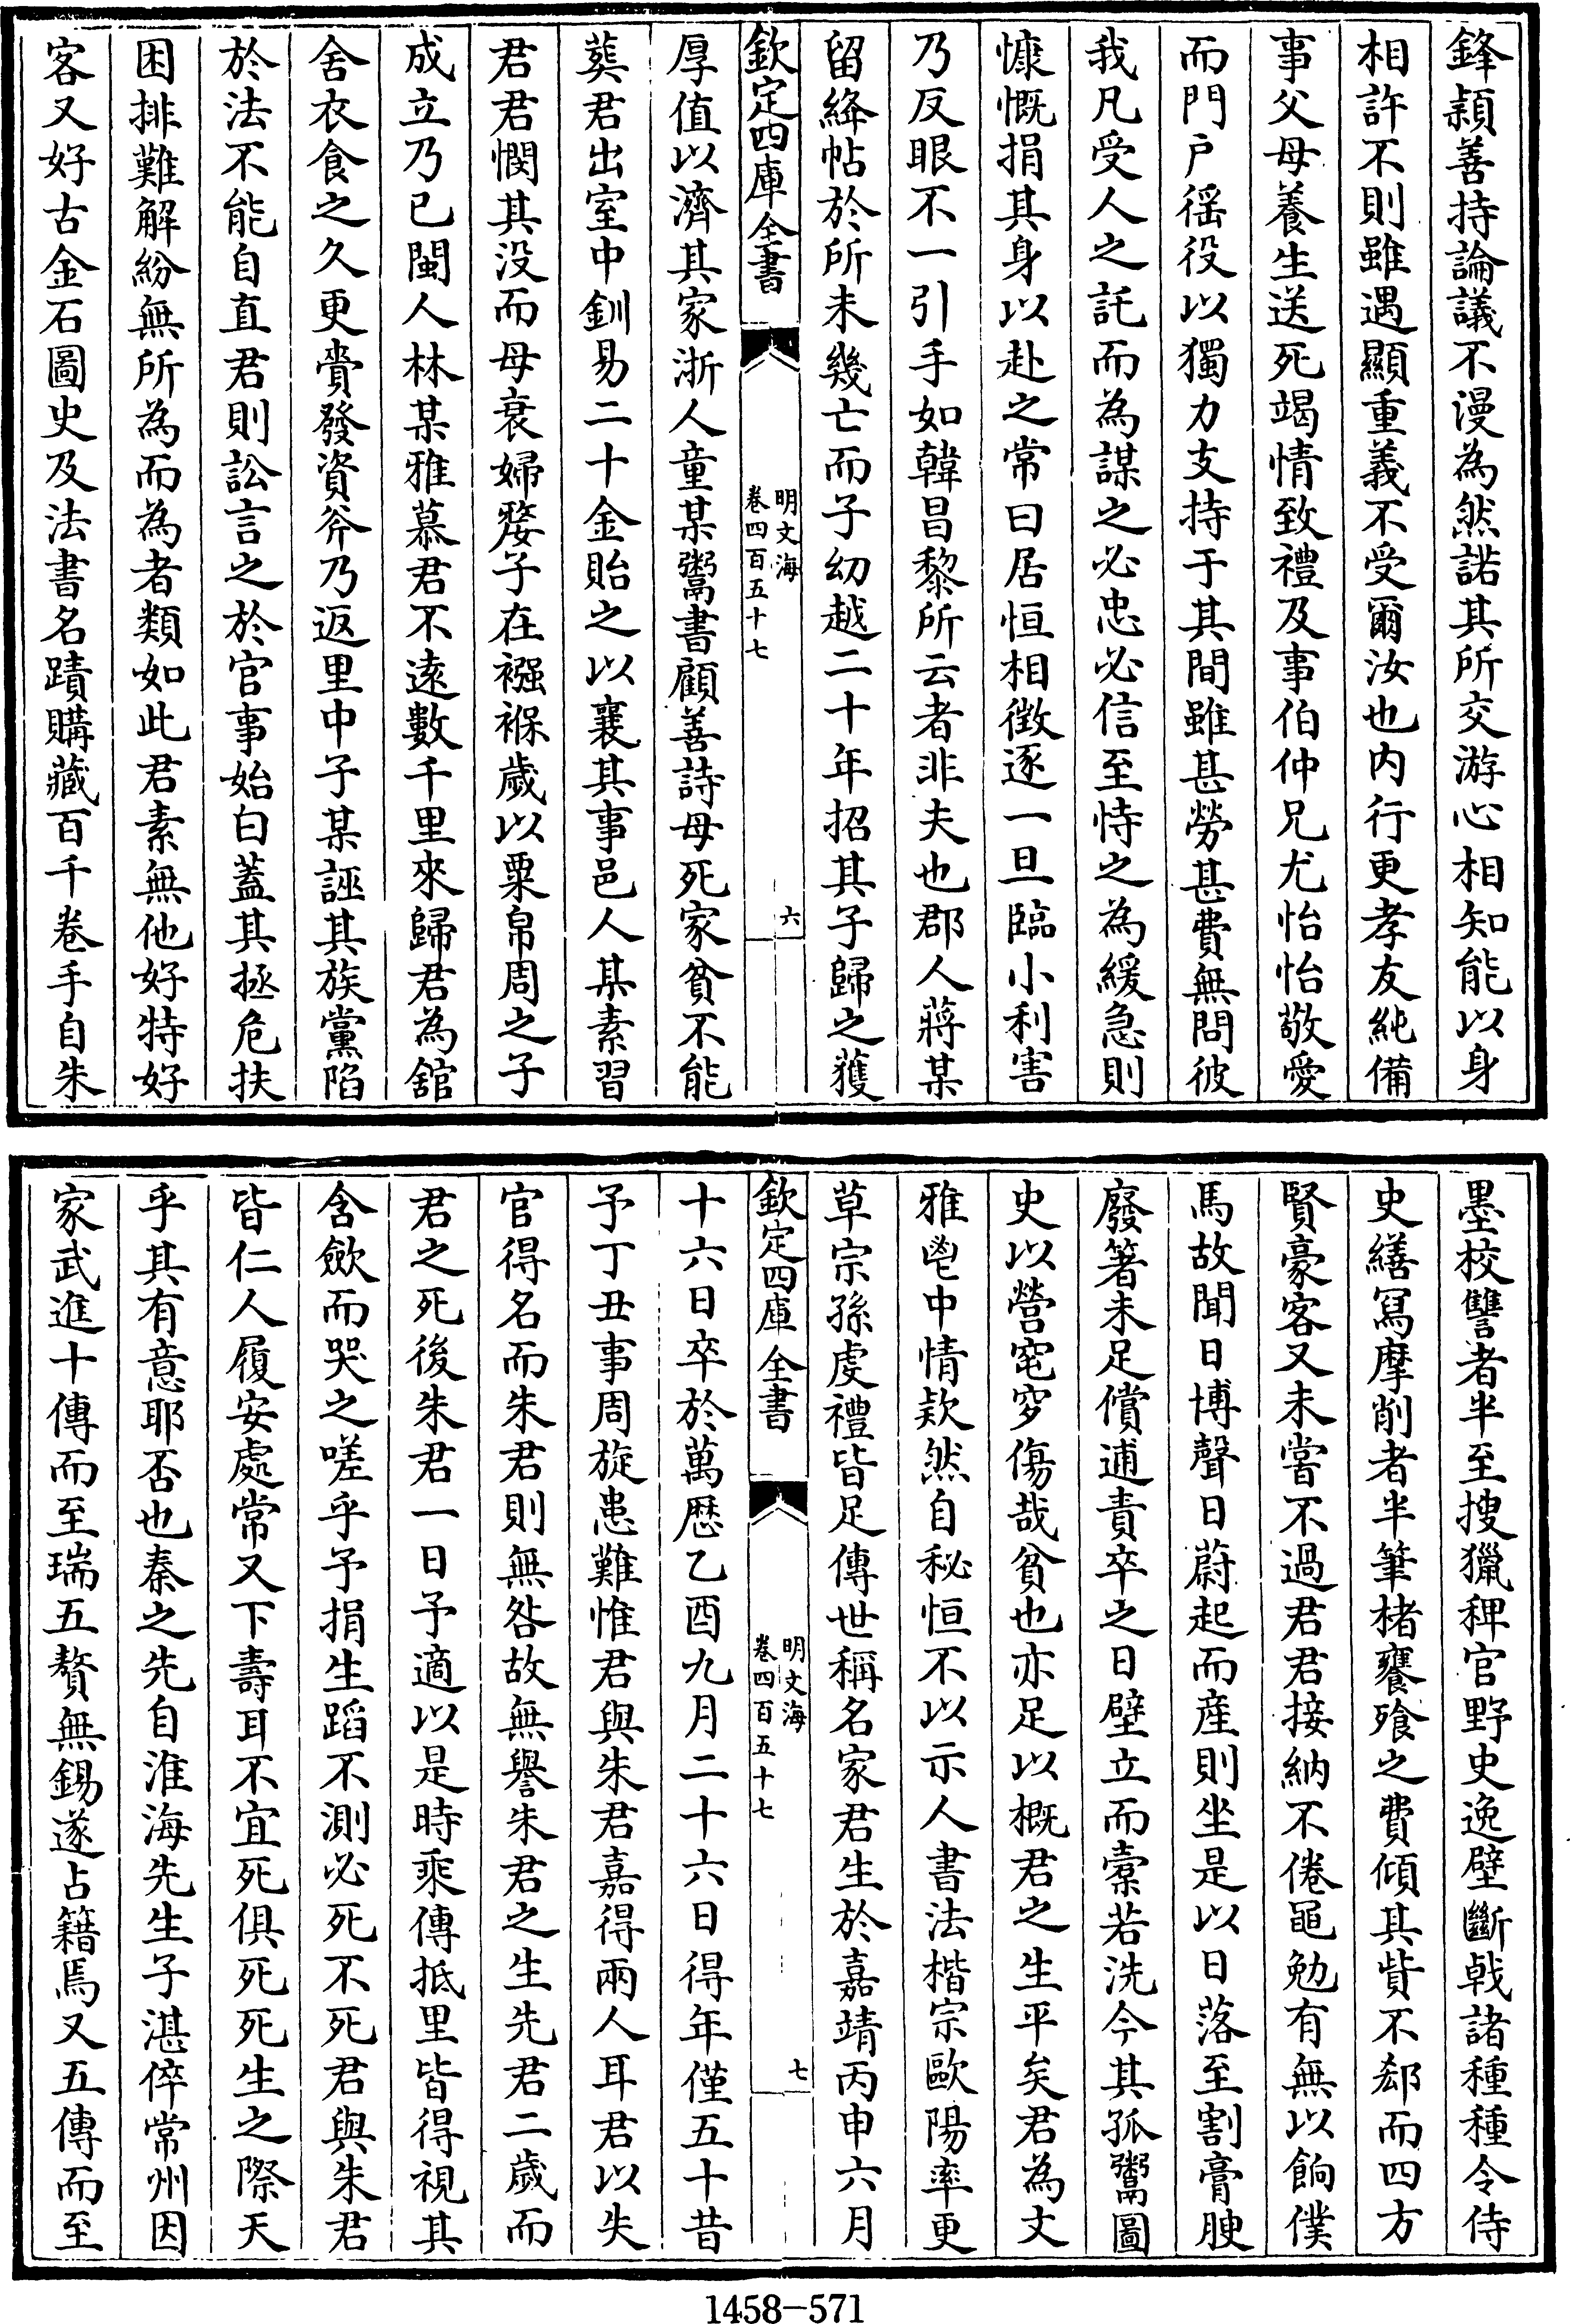 鋒穎善持論議不漫為然諾其所交游心相知能以身
相許不則雖遇顯重義不受爾汝也内行更孝友純備
事父母養生送死竭情致禮及事伯仲兄尤怡怡敬愛
而門戶徭役以獨力支持于其間雖甚勞甚費無問彼
我凡受人之託而為謀之必忠必信至恃之為緩急則
慷慨捐其身以赴之常曰居恒相徴逐一旦臨小利害
乃反眼不一引手如韓昌黎所云者非夫也郡人蔣某
留絳帖於所未幾亡而子幼越二十年招其子歸之獲
欽定四庫全書
明文海
卷四百五十七
六
厚值以濟其家浙人童某鬻書顧善詩母死家貧不能
葬君出室中釧易二十金貽之以襄其事邑人某素習
君君憫其没而母衰婦嫠子在襁褓歲以粟帛周之子
成立乃已閩人林某雅慕君不遠數千里來歸君為舘
舍衣食之久更賫發資斧乃返里中子某誣其族黨陷
於法不能自直君則訟言之於官事始白蓋其拯危扶
困排難解紛無所為而為者類如此君素無他好特好
客又好古金石圖史及法書名蹟購藏百千卷手自朱
墨校讐者半至搜獵稗官野史逸壁斷戟諸種種令侍
史繕冩摩削者半筆楮饔飱之費傾其貲不郄而四方
賢豪客又未嘗不過君君接納不倦黽勉有無以餉僕
馬故聞日博聲日蔚起而産則坐是以日落至割膏腴
廢箸未足償逋責卒之日壁立而槖若洗今其孤鬻圖
史以營窀穸傷哉貧也亦足以概君之生平矣君為文
雅鬯中情欵然自秘恒不以示人書法楷宗歐陽率更
草宗孫虔禮皆足傳世稱名家君生於嘉靖丙申六月
欽定四庫全書
明文海
卷四百五十七
七
十六日卒於萬歴乙酉九月二十六日得年僅五十昔
予丁丑事周旋患難惟君與朱君嘉得兩人耳君以失
官得名而朱君則無咎故無譽朱君之生先君二歲而
君之死後朱君一日予適以是時乘傳抵里皆得視其
含歛而哭之嗟乎予捐生蹈不測必死不死君與朱君
皆仁人履安處常又下壽耳不宜死俱死死生之際天
乎其有意耶否也秦之先自淮海先生子湛倅常州因
家武進十傳而至瑞五贅無錫遂占籍焉又五傳而至
1458-571